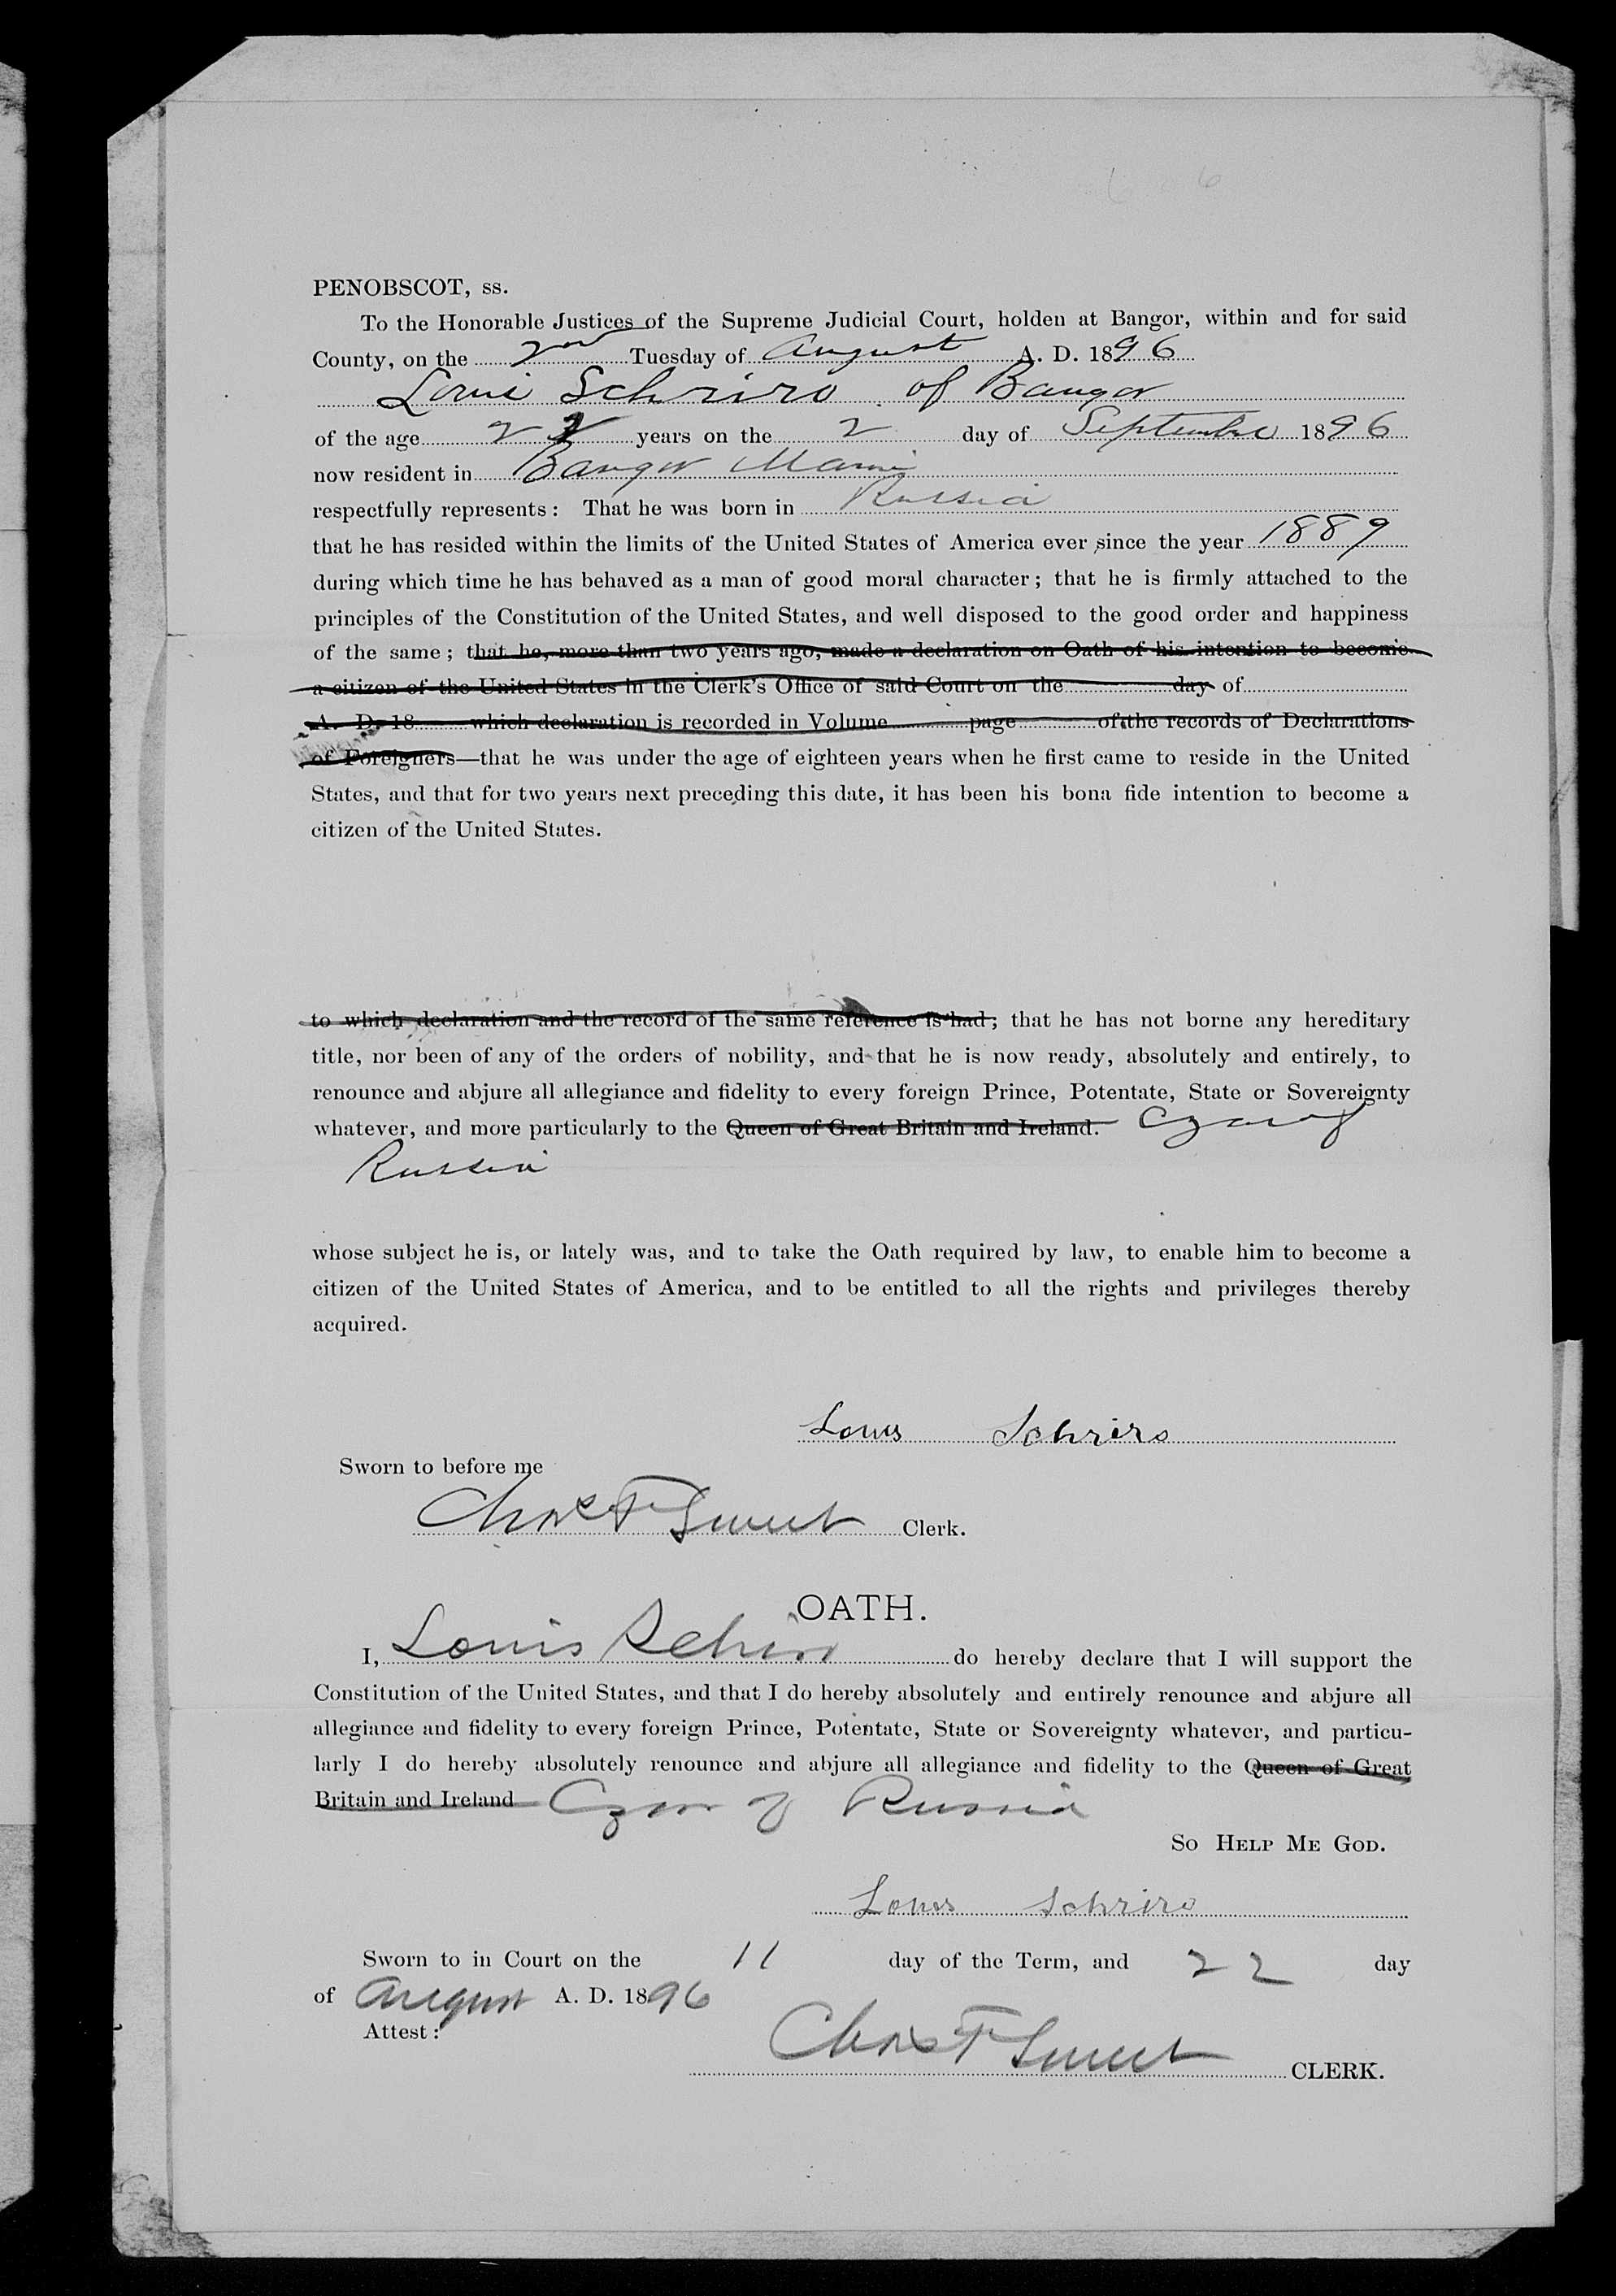 PENOBSCOT, ss.
To the Honorable Justices of the Supreme Judicial Court, holden at Bangor, within and for said
County, on the 2nd Tuesday of August A. D. 1896
Loui Schriro of Bangor
of the age 22 years on the 2 day of September 1896
now resident in Bangor Maine
respectfully represents: That he was born in Russia
that he has resided within the limits of the United States of America ever since the year 1889
during which time he has behaved as a man of good moral character; that he is firmly attached to the
principles of the Constitution of the United States, and well disposed to the good order and happiness
of the same; that he, more than two years ago, made a declaration on Oath of his intention to become
a citizen of the United States in the Clerk's Office of said Court on the day of
A. D. 18 which declaration is recorded in Volume page of the records of Declarations
of Foreigners—that he was under the age of eighteen years when he first came to reside in the United
States, and that for two years next preceding this date, it has been his bona fide intention to become a
citizen of the United States.
to which declaration and the record of the same reference is had; that he has not borne any hereditary
title, nor been of any of the orders of nobility, and that he is now ready, absolutely and entirely, to
renounce and abjure all allegiance and fidelity to every foreign Prince, Potentate, State or Sovereignty
whatever, and more particularly to the Queen of Great Britain and Ireland. Czar of
Russia
whose subject he is, or lately was, and to take the Oath required by law, to enable him to become a
citizen of the United States of America, and to be entitled to all the rights and privileges thereby
acquired.
Louis Schriro
Sworn to before me
Chas F Sweet Clerk.
OATH.
I, Louis Schiro do hereby declare that I will support the
Constitution of the United States, and that I do hereby absolutely and entirely renounce and abjure all
allegiance and fidelity to every foreign Prince, Potentate, State or Sovereignty whatever, and particu-
larly I do hereby absolutely renounce and abjure all allegiance and fidelity to the Queen of Great
Britain and Ireland Czar of Russia
So Help Me God.
Louis Schriro
Sworn to in Court on the 11 day of the Term, and 22 day
of August A. D. 1896
Attest:
Chas F Sweet CLERK.